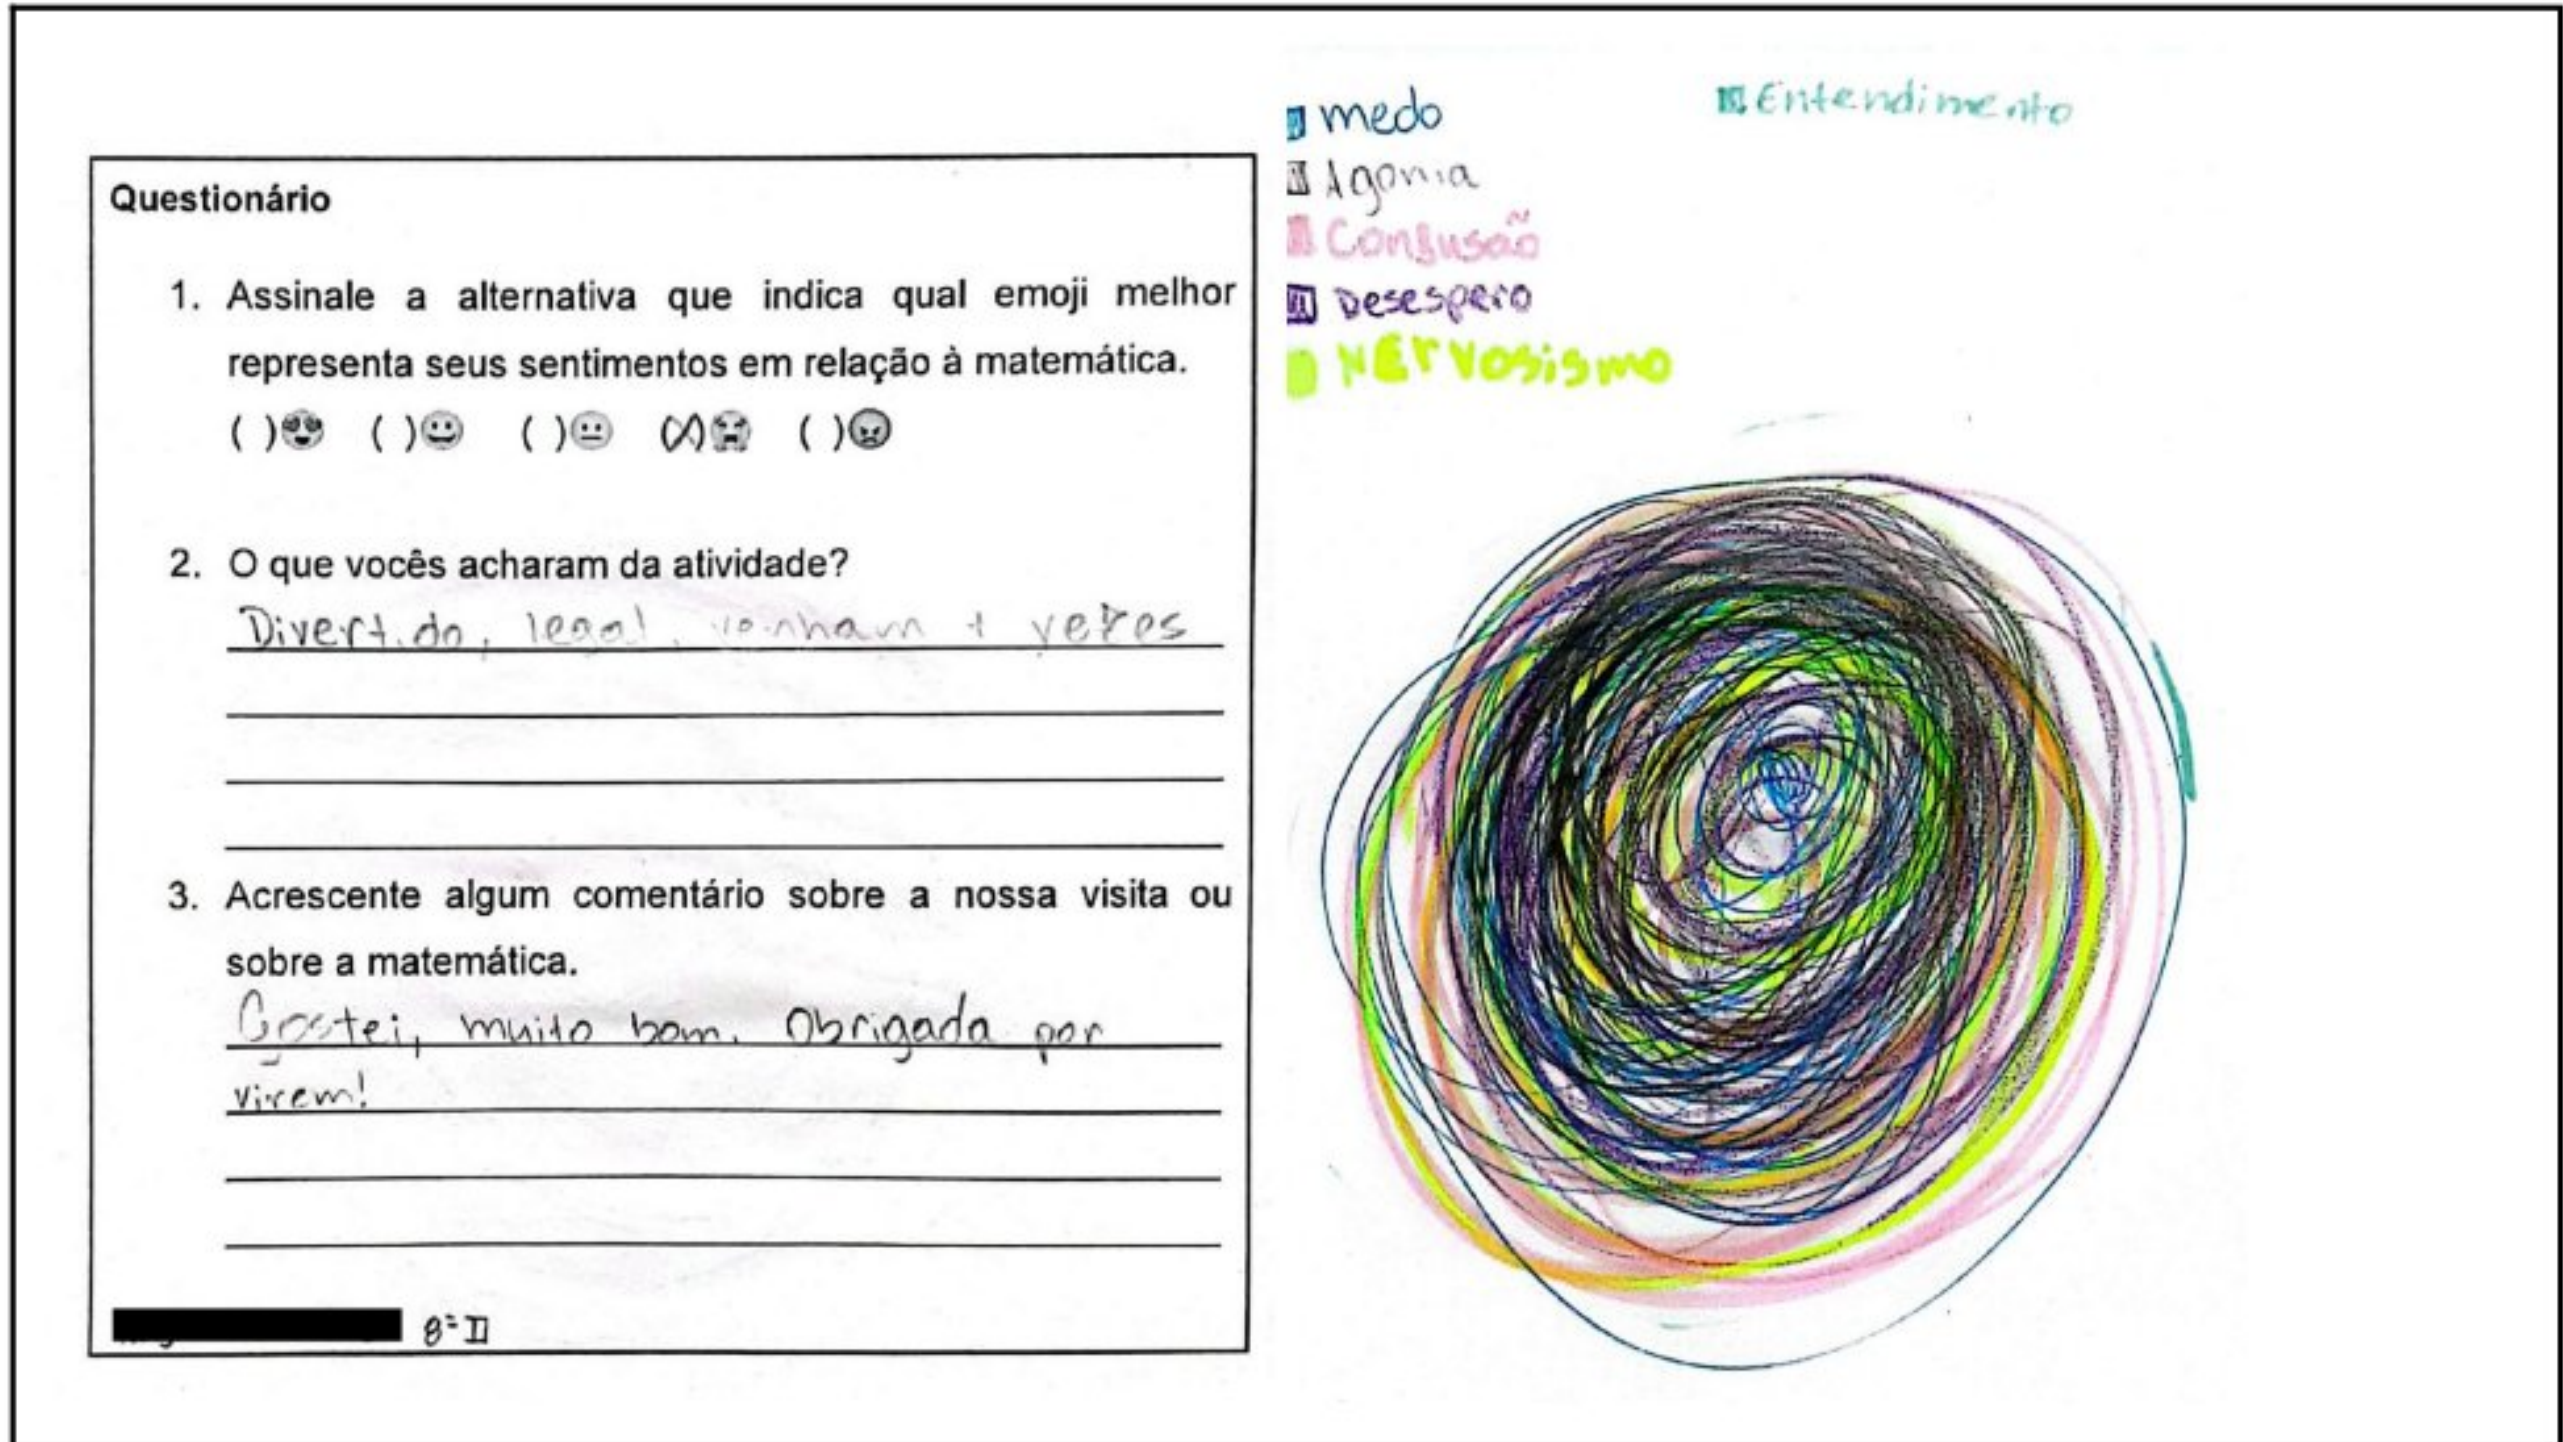 Questionário
1. Assinale a alternativa que indica qual emoji melhor
representa seus sentimentos em relação à matemática.
( )😍 ( )😀 ( )😐 (X)😭 ( )😡
2. O que vocês acharam da atividade?
Divertido, legal, venham + vezes
3. Acrescente algum comentário sobre a nossa visita ou
sobre a matemática.
Gostei, muito bom. Obrigada por
virem!
8º II
medo
Agonia
Confusão
Desespero
NERVOSISMO
Entendimento